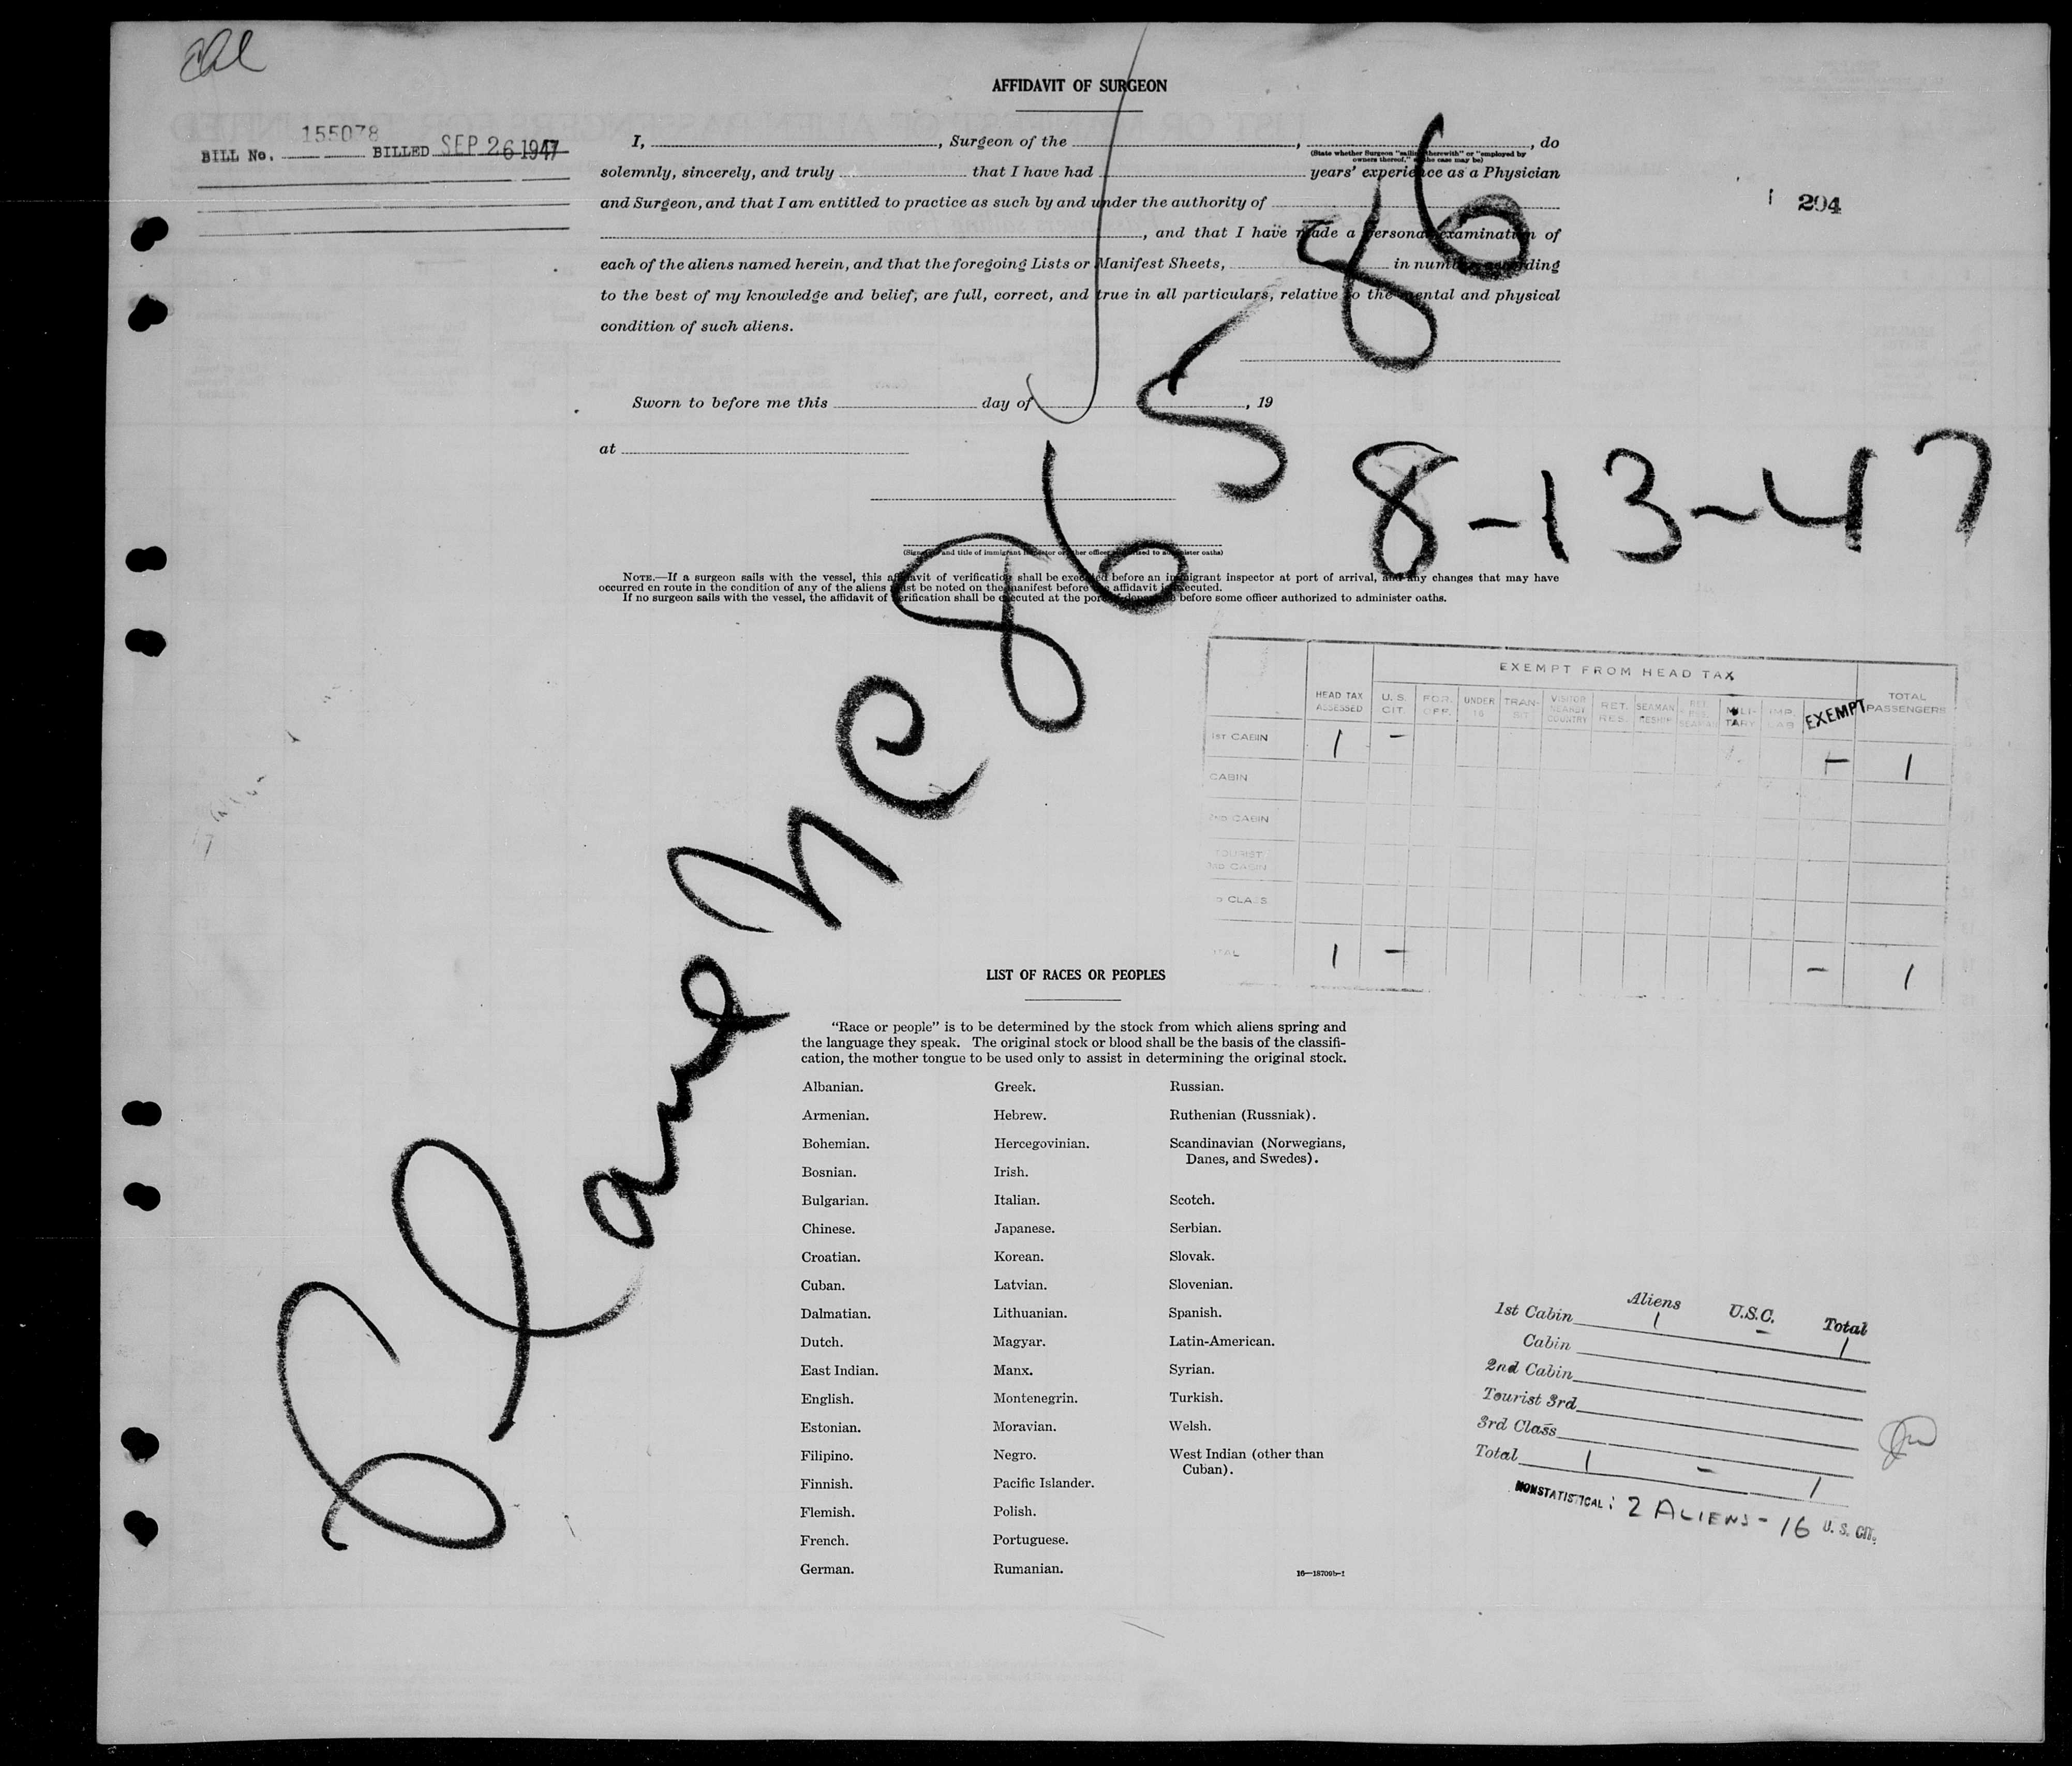 AFFIDAVIT OF SURGEON
155078
BILL No. BILLED SEP 26 1947
I, , Surgeon of the , , do
(State whether Surgeon "sailing therewith" or "employed by
owners thereof," as the case may be)
solemnly, sincerely, and truly that I have had years' experience as a Physician
and Surgeon, and that I am entitled to practice as such by and under the authority of
, and that I have made a personal examination of
each of the aliens named herein, and that the foregoing Lists or Manifest Sheets, in number according
to the best of my knowledge and belief, are full, correct, and true in all particulars, relative to the mental and physical
condition of such aliens.
294
Sworn to before me this day of , 19
at
(Signature and title of immigrant inspector or other officer authorized to administer oaths)
NOTE.—If a surgeon sails with the vessel, this affidavit of verification shall be executed before an immigrant inspector at port of arrival, and any changes that may have
occurred en route in the condition of any of the aliens must be noted on the manifest before the affidavit is executed.
If no surgeon sails with the vessel, the affidavit of verification shall be executed at the port of departure before some officer authorized to administer oaths.
Plane NC 86586
8-13-47
EXEMPT FROM HEAD TAX
HEAD TAX ASSESSED U. S. CIT. FOR. OFF. UNDER 16 TRANSIT VISITOR NEARBY COUNTRY RET. RES. SEAMAN RESHIP MILITARY EXEMPT TOTAL PASSENGERS
1ST CABIN 1 – – 1
CABIN
2ND CABIN
TOURIST
3RD CABIN
D CLASS
TOTAL 1 – – 1
LIST OF RACES OR PEOPLES
"Race or people" is to be determined by the stock from which aliens spring and
the language they speak. The original stock or blood shall be the basis of the classifi-
cation, the mother tongue to be used only to assist in determining the original stock.
Albanian. Greek. Russian.
Armenian. Hebrew. Ruthenian (Russniak).
Bohemian. Hercegovinian. Scandinavian (Norwegians,
Danes, and Swedes).
Bosnian. Irish.
Bulgarian. Italian. Scotch.
Chinese. Japanese. Serbian.
Croatian. Korean. Slovak.
Cuban. Latvian. Slovenian.
Dalmatian. Lithuanian. Spanish.
Dutch. Magyar. Latin-American.
East Indian. Manx. Syrian.
English. Montenegrin. Turkish.
Estonian. Moravian. Welsh.
Filipino. Negro. West Indian (other than
Cuban).
Finnish. Pacific Islander.
Flemish. Polish.
French. Portuguese.
German. Rumanian.
16—18709b-1
Aliens U.S.C. Total
1st Cabin 1 – 1
Cabin
2nd Cabin
Tourist 3rd
3rd Class
Total 1 – 1
NONSTATISTICAL: 2 ALIENS - 16 U. S. CIT.